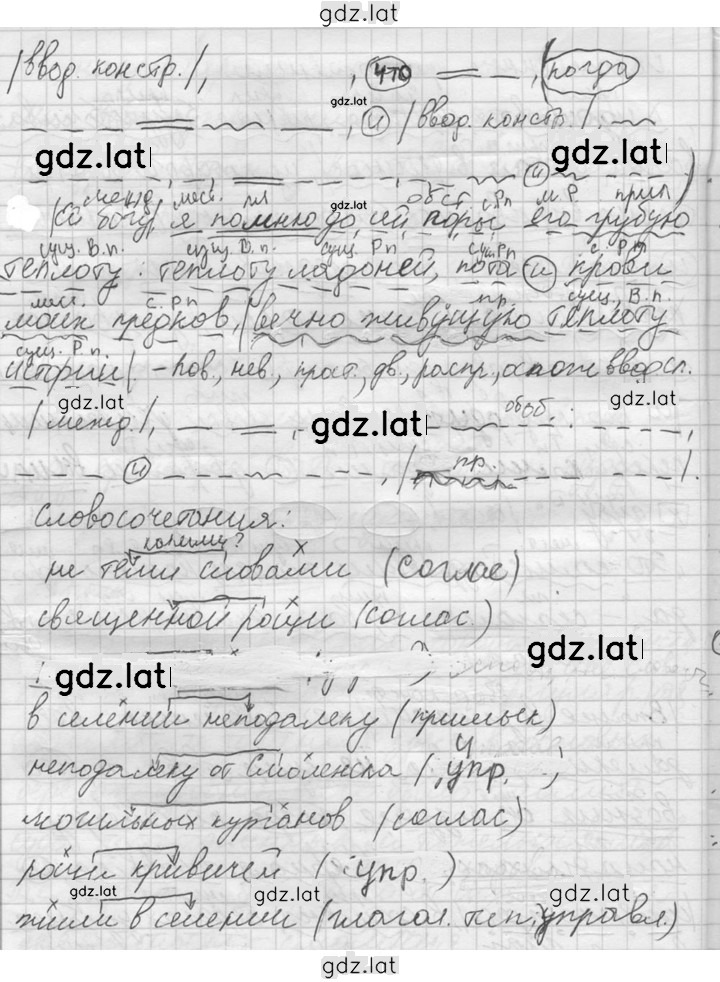 gdz.lat
/ввод. констр./, , что , когда
gdz.lat
, и /ввод. констр./,
gdz.lat gdz.lat
и
межд. мест. гл обст с. Рп м. р. прил
gdz.lat
/Ей богу/ я помню до сей поры его грубую
сущ. В.п. сущ. В.п. сущ. Рп сущ. Рп с. Рп
теплоту: теплоту ладоней, пота и крови
мест. с. Рп пр. сущ., В.п.
моих предков, /вечно живущую теплоту
сущ. Р п.
истории/ – пов., нев., прост., дв., распр., ослож вводсл.
gdz.lat gdz.lat gdz.lat
/межд./, обоб. :
и , / пр. /.
Словосочетания:
какими?
не теми словами (соглас)
священной рощи (соглас.)
gdz.lat gdz.lat
в селении неподалеку (примык)
неподалеку от Смоленска (упр.
могильных курганов (соглас)
рощи кривичей (упр.)
gdz.lat gdz.lat gdz.lat
жили в селении (глагол. управл.)
gdz.lat